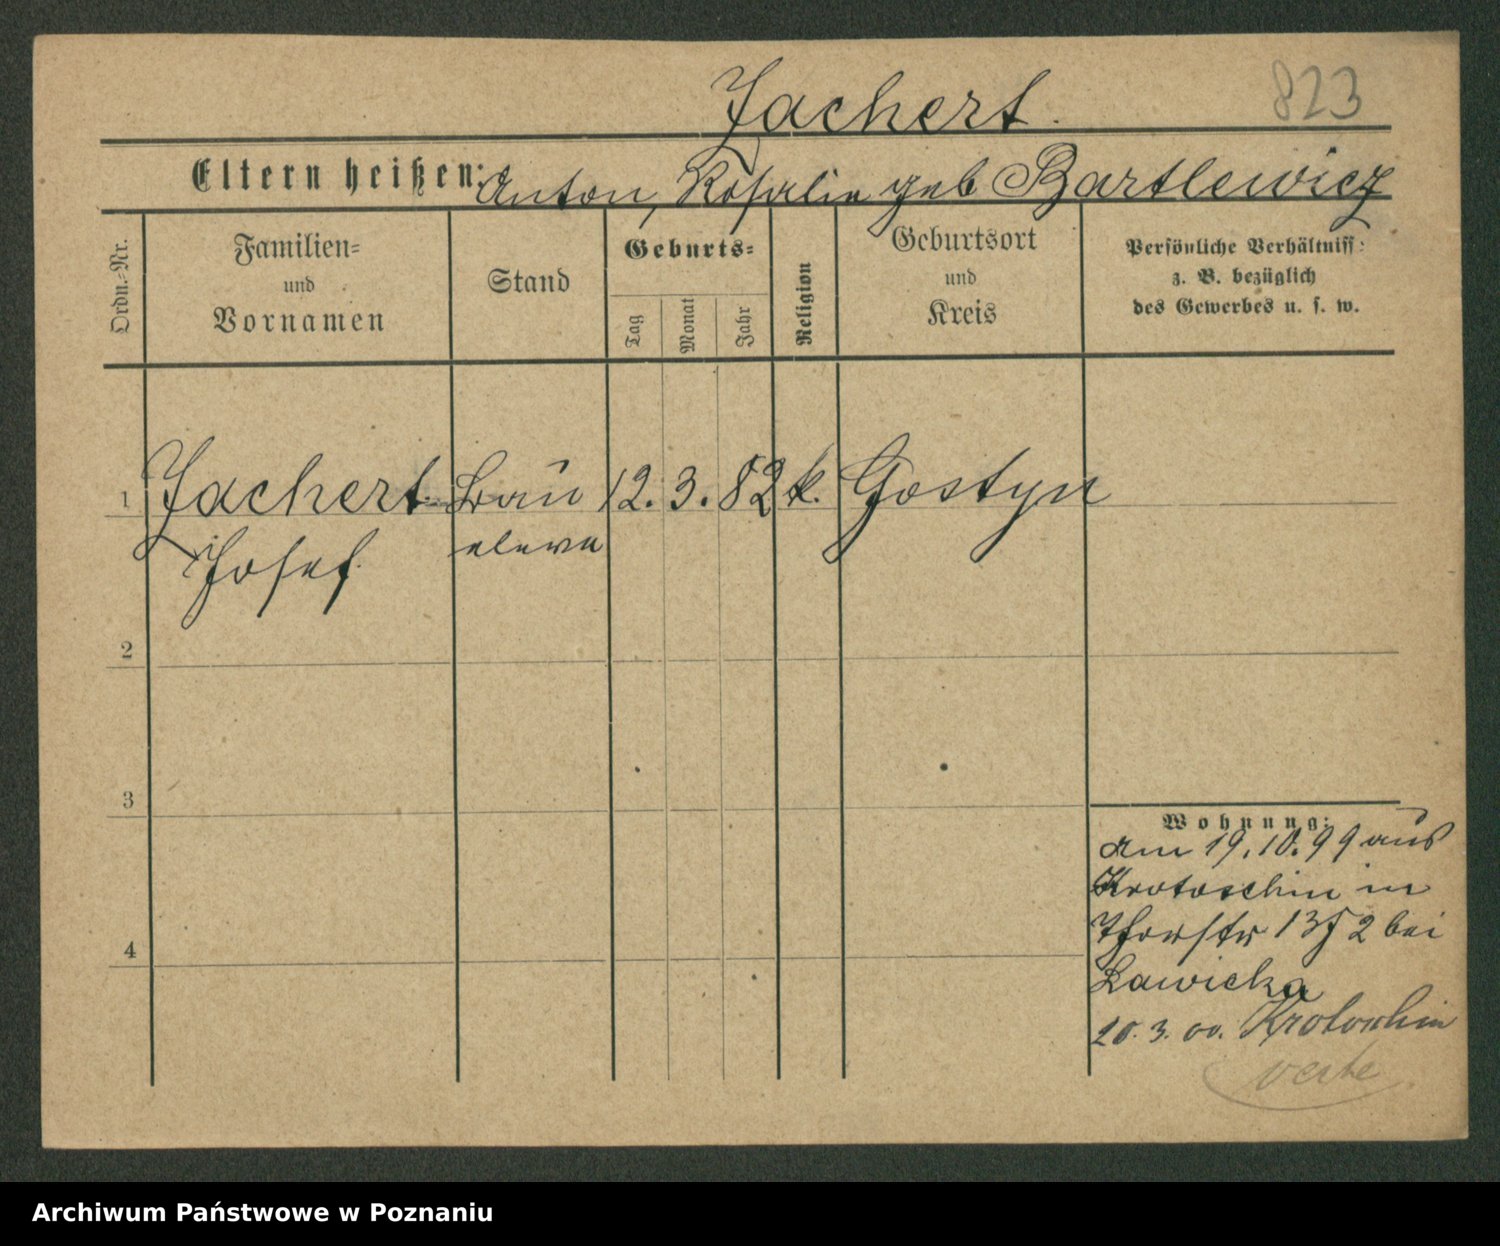 Jachert.
823
Eltern heißen: Anton, Rosalie geb Bartlewicz
Ordn.-Nr.
Familien-
und
Vornamen
Stand
Geburts-
Tag
Monat
Jahr
Religion
Geburtsort
und
Kreis
Persönliche Verhältniss:
z. B. bezüglich
des Gewerbes u. s. w.
1 Jachert Bau 12. 3. 82 k. Gostyn
Josef. eleve
2
3
4
Wohnung:
am 19.10.99 aus
Krotoschin in
13 2 bei
Lawicka
20. 3. 00. Krotoschin
verte
Archiwum Państwowe w Poznaniu